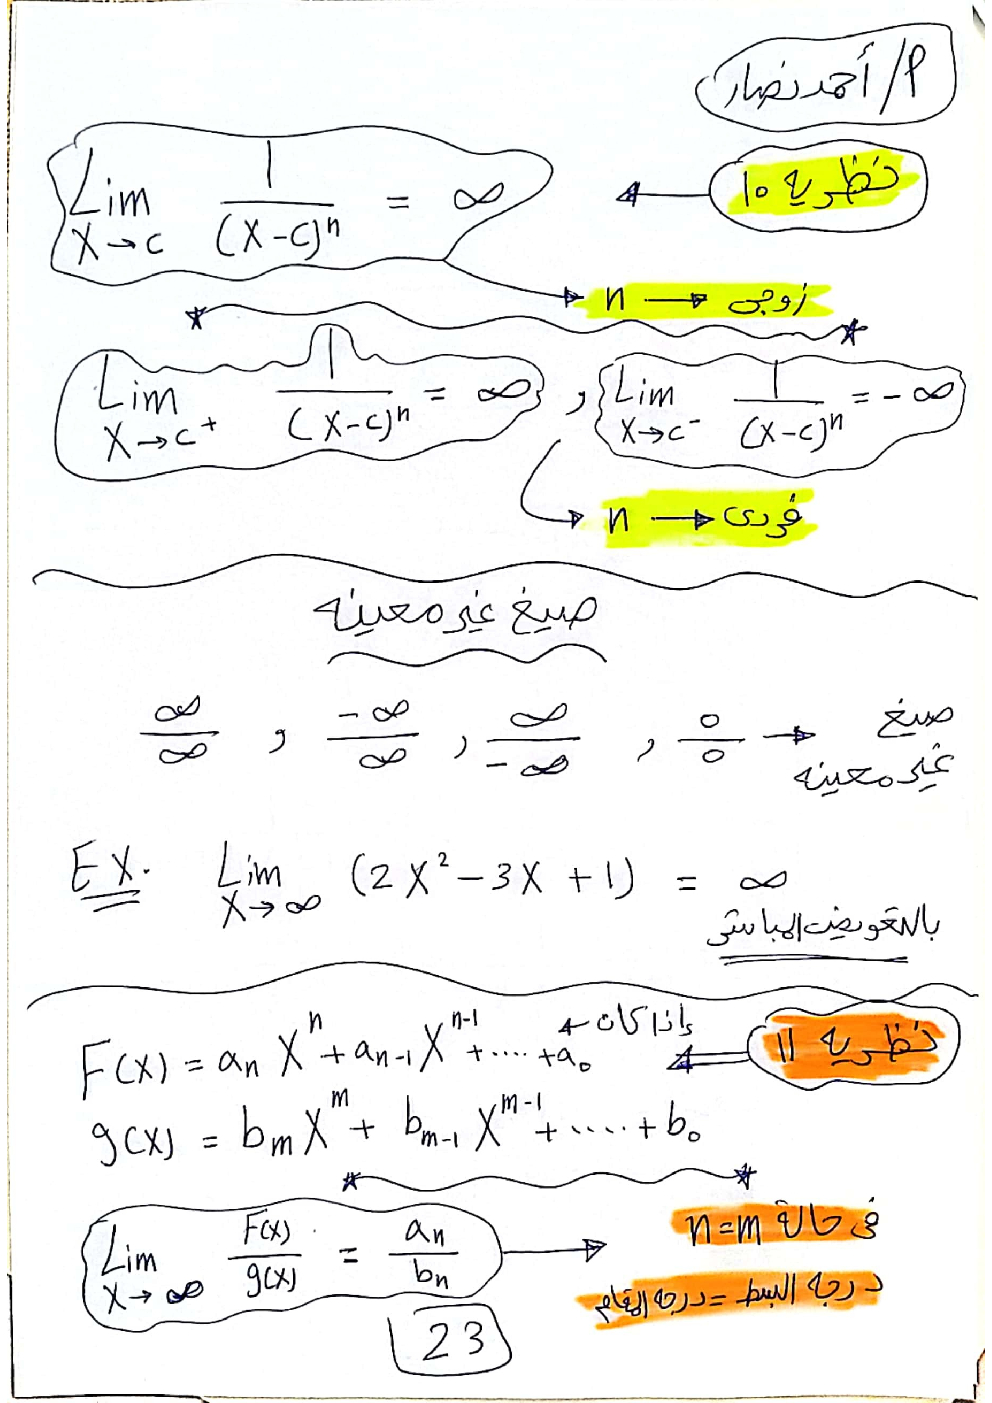 م/ أحمد نصار
نظرية ١٠
Lim X→c 1/(X-c)^n = ∞
n → زوجى
Lim X→c+ 1/(X-c)^n = ∞ , Lim X→c- 1/(X-c)^n = -∞
n → فردى
صيغ غير معينه
∞/∞ , -∞/∞ , ∞/-∞ , 0/0 → صيغ غير معينه
EX. Lim X→∞ (2X²-3X+1) = ∞
بالتعويض المباشر
نظرية ١١
إذا كان
F(X) = aₙ Xⁿ + aₙ₋₁ Xⁿ⁻¹ + .... + a₀
g(X) = bₘ X^m + bₘ₋₁ X^m-1 + ..... + b₀
Lim X→∞ F(X)/g(X) = aₙ/bₙ
فى حالة n=m
درجة البسط = درجة المقام
23